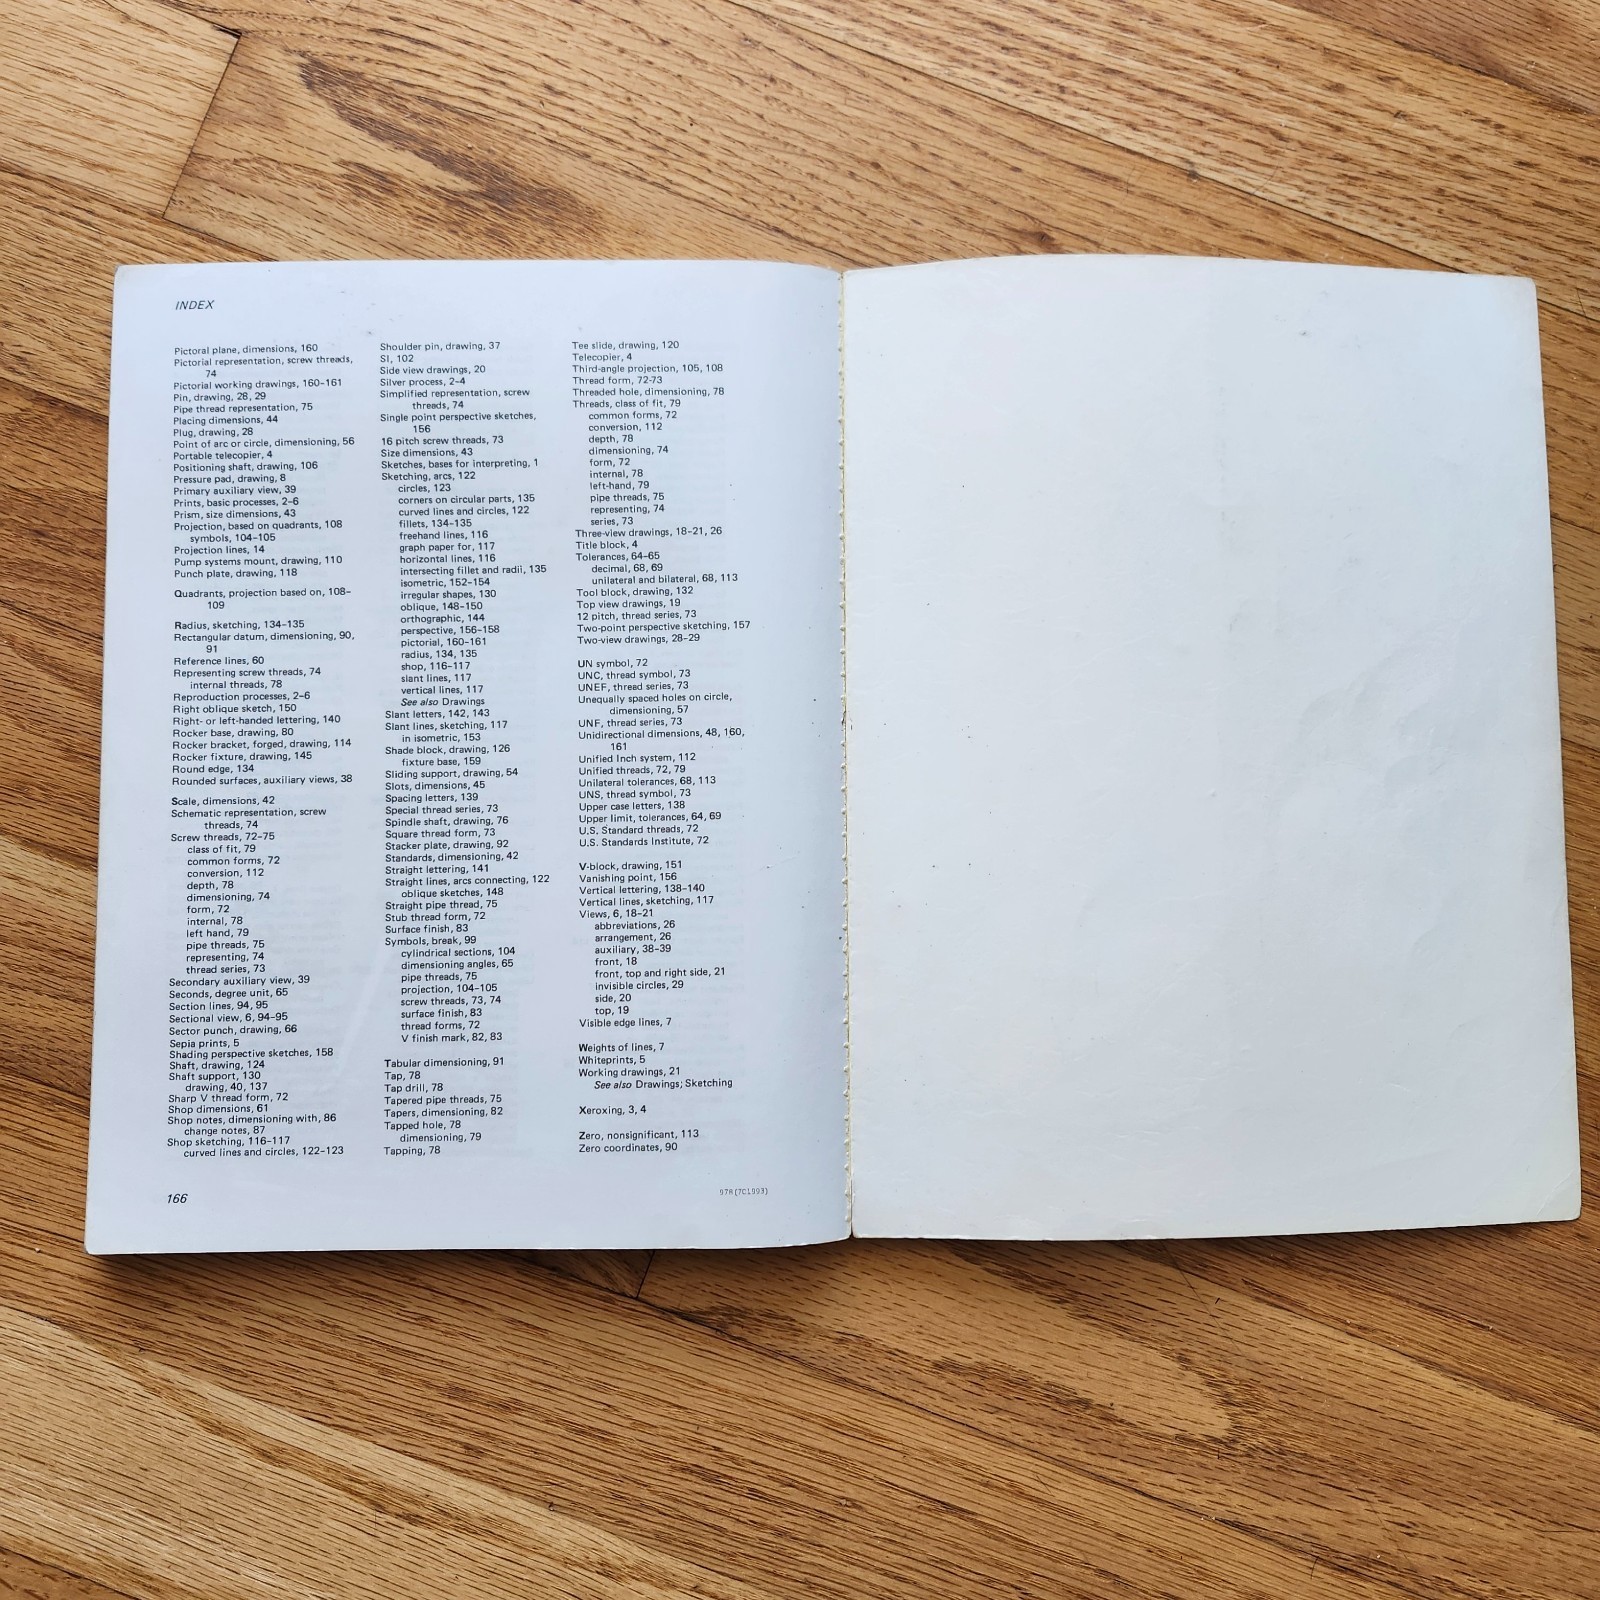 INDEX
Pictoral plane, dimensions, 160
Pictorial representation, screw threads,
74
Pictorial working drawings, 160-161
Pin, drawing, 28, 29
Pipe thread representation, 75
Placing dimensions, 44
Plug, drawing, 28
Point of arc or circle, dimensioning, 56
Portable telecopier, 4
Positioning shaft, drawing, 106
Pressure pad, drawing, 8
Primary auxiliary view, 39
Prints, basic processes, 2-6
Prism, size dimensions, 43
Projection, based on quadrants, 108
symbols, 104-105
Projection lines, 14
Pump systems mount, drawing, 110
Punch plate, drawing, 118
Quadrants, projection based on, 108-
109
Radius, sketching, 134-135
Rectangular datum, dimensioning, 90,
91
Reference lines, 60
Representing screw threads, 74
internal threads, 78
Reproduction processes, 2-6
Right oblique sketch, 150
Right- or left-handed lettering, 140
Rocker base, drawing, 80
Rocker bracket, forged, drawing, 114
Rocker fixture, drawing, 145
Round edge, 134
Rounded surfaces, auxiliary views, 38
Scale, dimensions, 42
Schematic representation, screw
threads, 74
Screw threads, 72-75
class of fit, 79
common forms, 72
conversion, 112
depth, 78
dimensioning, 74
form, 72
internal, 78
left hand, 79
pipe threads, 75
representing, 74
thread series, 73
Secondary auxiliary view, 39
Seconds, degree unit, 65
Section lines, 94, 95
Sectional view, 6, 94-95
Sector punch, drawing, 66
Sepia prints, 5
Shading perspective sketches, 158
Shaft, drawing, 124
Shaft support, 130
drawing, 40, 137
Sharp V thread form, 72
Shop dimensions, 61
Shop notes, dimensioning with, 86
change notes, 87
Shop sketching, 116-117
curved lines and circles, 122-123
Shoulder pin, drawing, 37
SI, 102
Side view drawings, 20
Silver process, 2-4
Simplified representation, screw
threads, 74
Single point perspective sketches,
156
16 pitch screw threads, 73
Size dimensions, 43
Sketches, bases for interpreting, 1
Sketching, arcs, 122
circles, 123
corners on circular parts, 135
curved lines and circles, 122
fillets, 134-135
freehand lines, 116
graph paper for, 117
horizontal lines, 116
intersecting fillet and radii, 135
isometric, 152-154
irregular shapes, 130
oblique, 148-150
orthographic, 144
perspective, 156-158
pictorial, 160-161
radius, 134, 135
shop, 116-117
slant lines, 117
vertical lines, 117
See also Drawings
Slant letters, 142, 143
Slant lines, sketching, 117
in isometric, 153
Shade block, drawing, 126
fixture base, 159
Sliding support, drawing, 54
Slots, dimensions, 45
Spacing letters, 139
Special thread series, 73
Spindle shaft, drawing, 76
Square thread form, 73
Stacker plate, drawing, 92
Standards, dimensioning, 42
Straight lettering, 141
Straight lines, arcs connecting, 122
oblique sketches, 148
Straight pipe thread, 75
Stub thread form, 72
Surface finish, 83
Symbols, break, 99
cylindrical sections, 104
dimensioning angles, 65
pipe threads, 75
projection, 104-105
screw threads, 73, 74
surface finish, 83
thread forms, 72
V finish mark, 82, 83
Tabular dimensioning, 91
Tap, 78
Tap drill, 78
Tapered pipe threads, 75
Tapers, dimensioning, 82
Tapped hole, 78
dimensioning, 79
Tapping, 78
Tee slide, drawing, 120
Telecopier, 4
Third-angle projection, 105, 108
Thread form, 72-73
Threaded hole, dimensioning, 78
Threads, class of fit, 79
common forms, 72
conversion, 112
depth, 78
dimensioning, 74
form, 72
internal, 78
left-hand, 79
pipe threads, 75
representing, 74
series, 73
Three-view drawings, 18-21, 26
Title block, 4
Tolerances, 64-65
decimal, 68, 69
unilateral and bilateral, 68, 113
Tool block, drawing, 132
Top view drawings, 19
12 pitch, thread series, 73
Two-point perspective sketching, 157
Two-view drawings, 28-29
UN symbol, 72
UNC, thread symbol, 73
UNEF, thread series, 73
Unequally spaced holes on circle,
dimensioning, 57
UNF, thread series, 73
Unidirectional dimensions, 48, 160,
161
Unified Inch system, 112
Unified threads, 72, 79
Unilateral tolerances, 68, 113
UNS, thread symbol, 73
Upper case letters, 138
Upper limit, tolerances, 64, 69
U.S. Standard threads, 72
U.S. Standards Institute, 72
V-block, drawing, 151
Vanishing point, 156
Vertical lettering, 138-140
Vertical lines, sketching, 117
Views, 6, 18-21
abbreviations, 26
arrangement, 26
auxiliary, 38-39
front, 18
front, top and right side, 21
invisible circles, 29
side, 20
top, 19
Visible edge lines, 7
Weights of lines, 7
Whiteprints, 5
Working drawings, 21
See also Drawings; Sketching
Xeroxing, 3, 4
Zero, nonsignificant, 113
Zero coordinates, 90
166
978(7C1993)